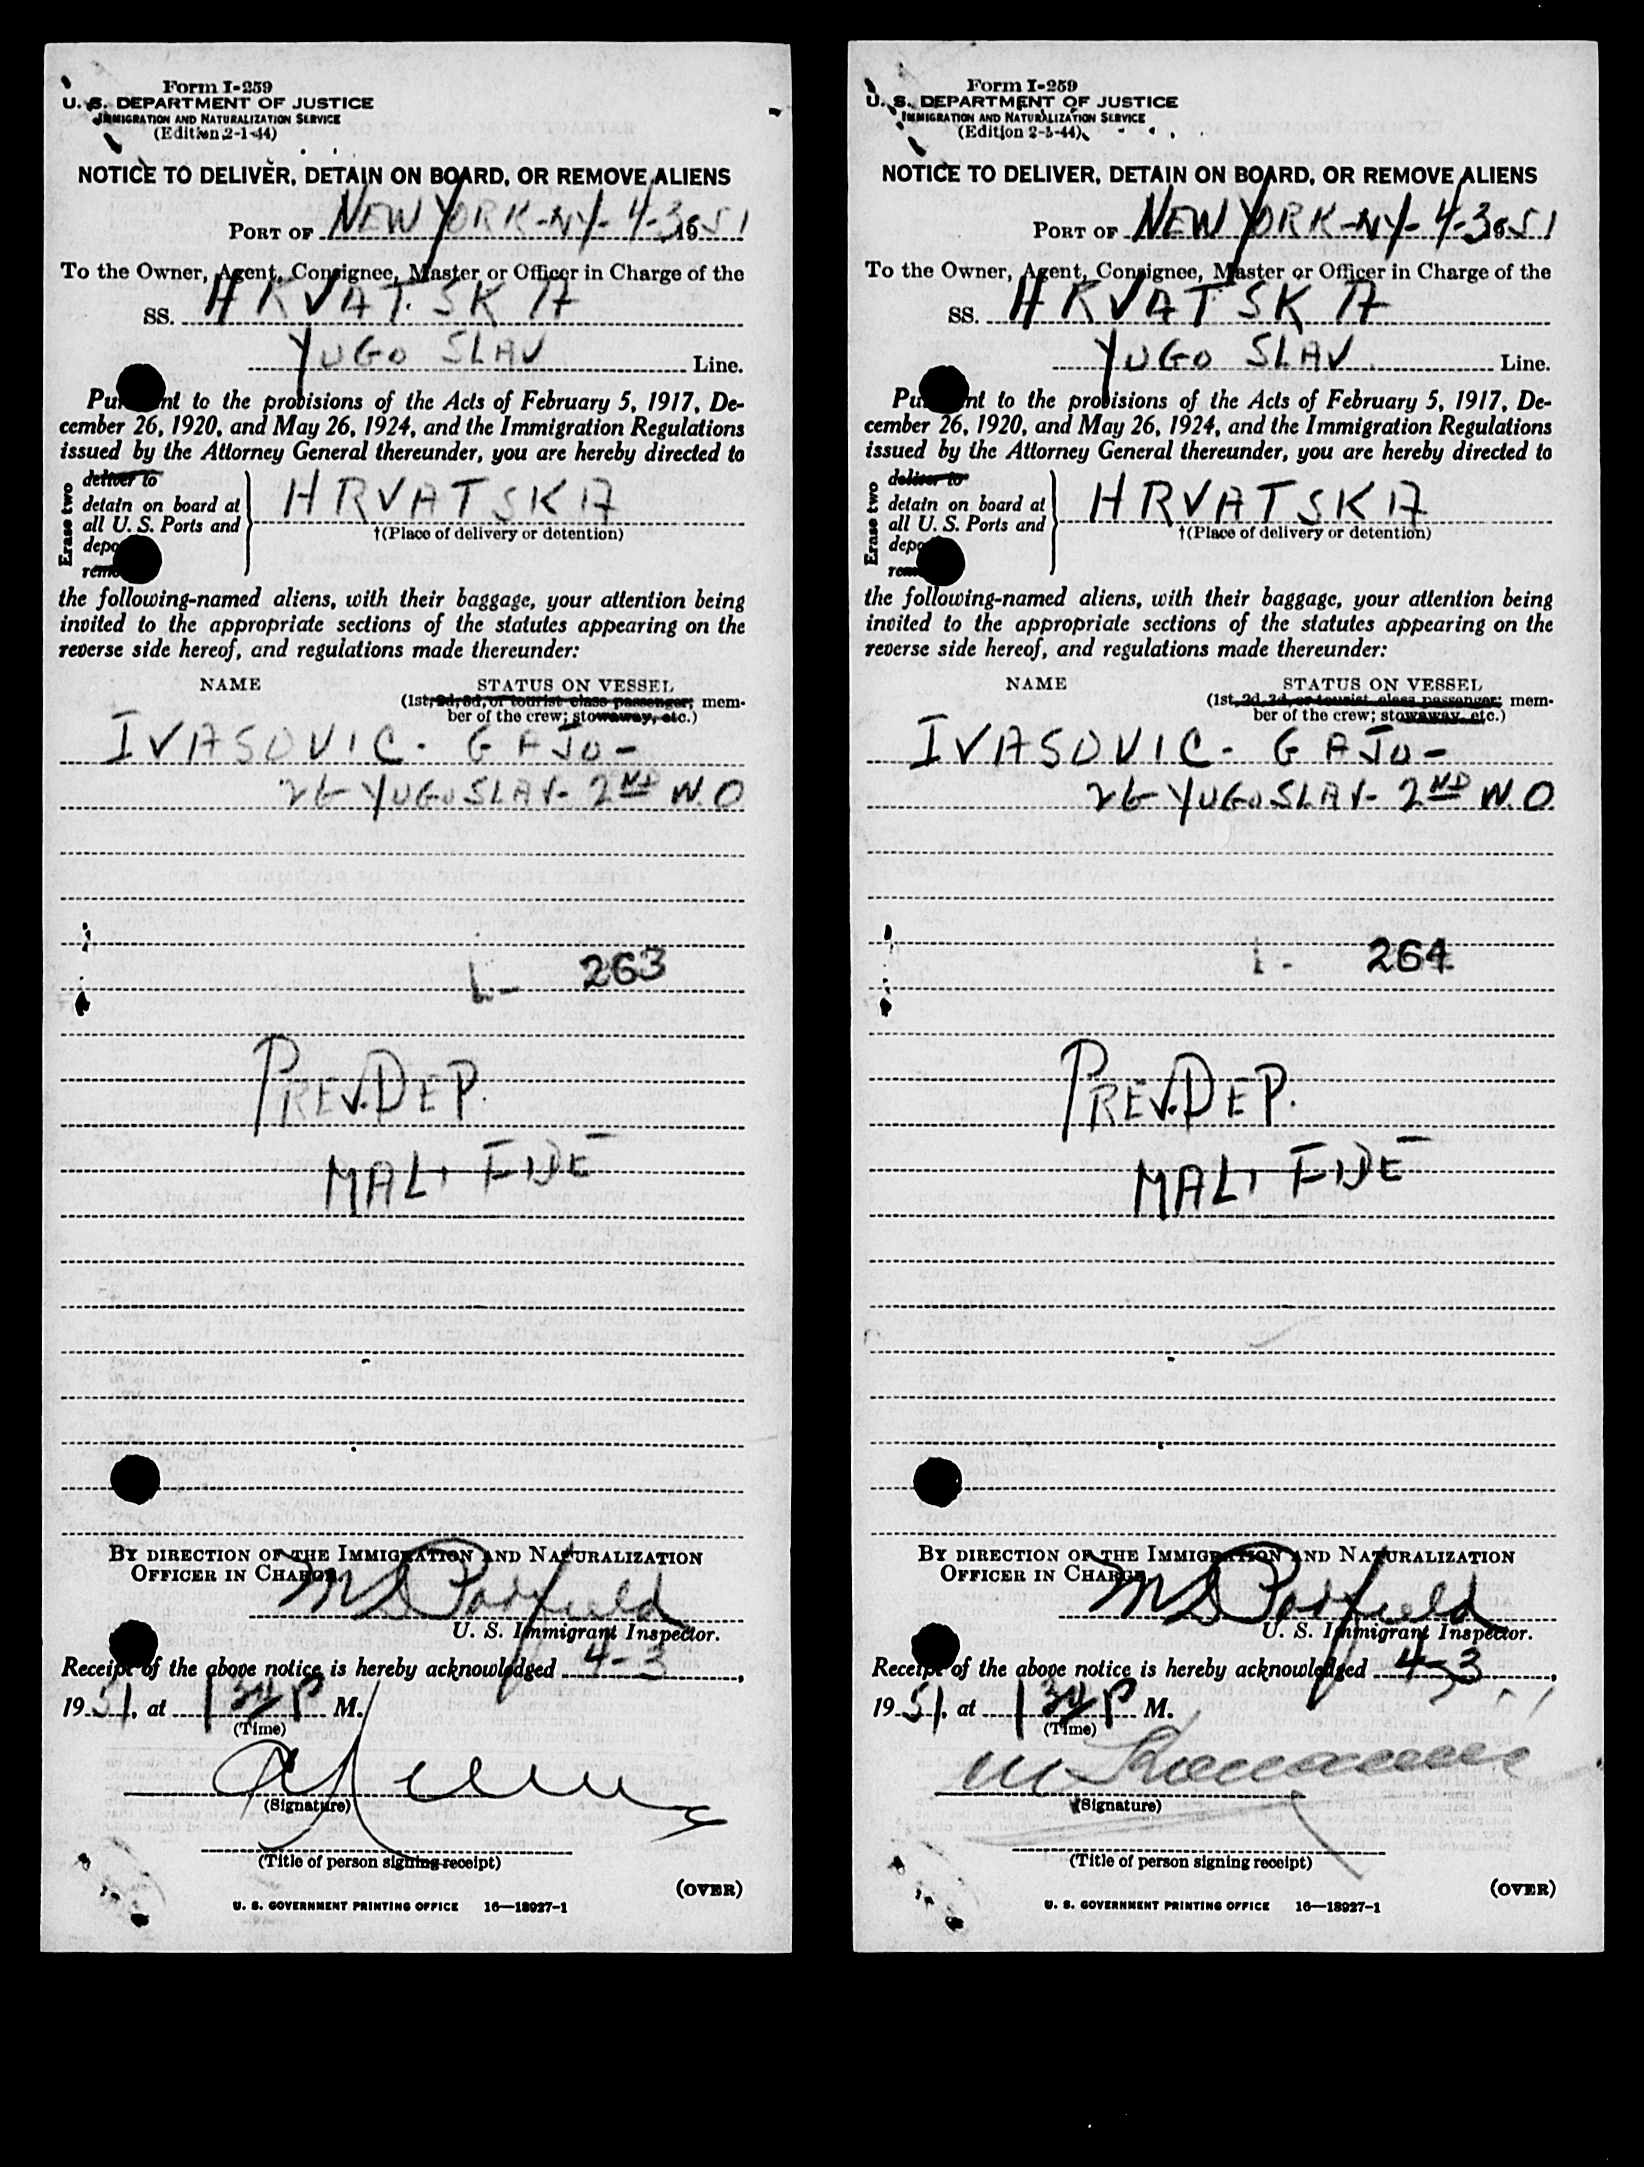 Form I-259
U. S. DEPARTMENT OF JUSTICE
IMMIGRATION AND NATURALIZATION SERVICE
(Edition 2-1-44)
NOTICE TO DELIVER, DETAIN ON BOARD, OR REMOVE ALIENS
PORT OF NEW YORK-NY- 4-3 1951
To the Owner, Agent, Consignee, Master or Officer in Charge of the
SS. HRVATSKA
YUGO SLAV Line.
Pu nt to the provisions of the Acts of February 5, 1917, De-
cember 26, 1920, and May 26, 1924, and the Immigration Regulations
issued by the Attorney General thereunder, you are hereby directed to
Erase two
deliver to
detain on board at
all U. S. Ports and
depo
remo
HRVATSKA
†(Place of delivery or detention)
the following-named aliens, with their baggage, your attention being
invited to the appropriate sections of the statutes appearing on the
reverse side hereof, and regulations made thereunder:
NAME STATUS ON VESSEL
(1st, 2d, 3d, or tourist class passenger; mem-
ber of the crew; stowaway, etc.)
IVASOVIC - GAJO -
26 YUGOSLAV- 2ND W.O
1- 263
PREV. DEP.
MALI FIDE
BY DIRECTION OF THE IMMIGRATION AND NATURALIZATION
OFFICER IN CHARGE.
U. S. Immigrant Inspector.
Receipt of the above notice is hereby acknowledged 4-3,
1951, at 130 P M.
(Time)
(Signature)
(Title of person signing receipt)
(OVER)
U. S. GOVERNMENT PRINTING OFFICE 16—18927-1
Form I-259
U. S. DEPARTMENT OF JUSTICE
IMMIGRATION AND NATURALIZATION SERVICE
(Edition 2-1-44)
NOTICE TO DELIVER, DETAIN ON BOARD, OR REMOVE ALIENS
PORT OF NEW YORK-NY- 4-3 1951
To the Owner, Agent, Consignee, Master or Officer in Charge of the
SS. HRVATSKA
YUGO SLAV Line.
Pu nt to the provisions of the Acts of February 5, 1917, De-
cember 26, 1920, and May 26, 1924, and the Immigration Regulations
issued by the Attorney General thereunder, you are hereby directed to
Erase two
deliver to
detain on board at
all U. S. Ports and
depo
remo
HRVATSKA
†(Place of delivery or detention)
the following-named aliens, with their baggage, your attention being
invited to the appropriate sections of the statutes appearing on the
reverse side hereof, and regulations made thereunder:
NAME STATUS ON VESSEL
(1st, 2d, 3d, or tourist class passenger; mem-
ber of the crew; stowaway, etc.)
IVASOVIC - GAJO -
26 YUGOSLAV- 2ND W.O
1- 264
PREV. DEP.
MALI FIDE
BY DIRECTION OF THE IMMIGRATION AND NATURALIZATION
OFFICER IN CHARGE.
U. S. Immigrant Inspector.
Receipt of the above notice is hereby acknowledged 4-3,
1951, at 130 P M.
(Time)
(Signature)
(Title of person signing receipt)
(OVER)
U. S. GOVERNMENT PRINTING OFFICE 16—18927-1